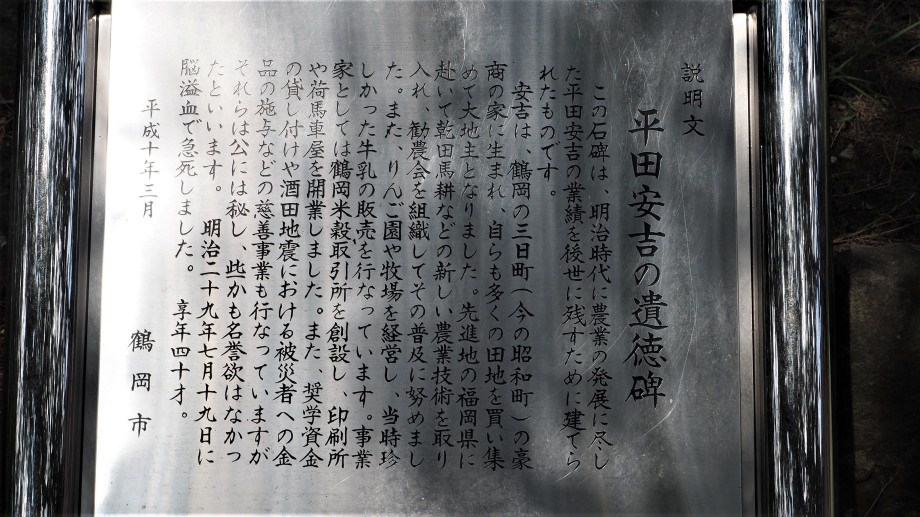 説明文
平田安吉の遺徳碑
この石碑は、明治時代に農業の発展に尽し
た平田安吉の業績を後世に残すために建てら
れたものです。
安吉は、鶴岡の三日町(今の昭和町)の豪
商の家に生まれ、自らも多くの田地を買い集
めて大地主となりました。先進地の福岡県に
赴いて乾田馬耕などの新しい農業技術を取り
入れ、勧農会を組織してその普及に努めまし
た。また、りんご園や牧場を経営し、当時珍
しかった牛乳の販売を行なっています。事業
家としては鶴岡米穀取引所を創設し、印刷所
や荷馬車屋を開業しました。また、奨学資金
の貸し付けや酒田地震における被災者への金
品の施与などの慈善事業も行なっていますが
それらは公には秘し、些かも名誉欲はなかっ
たといいます。 明治二十九年七月十九日に
脳溢血で急死しました。 享年四十才。
平成十年三月
鶴岡市